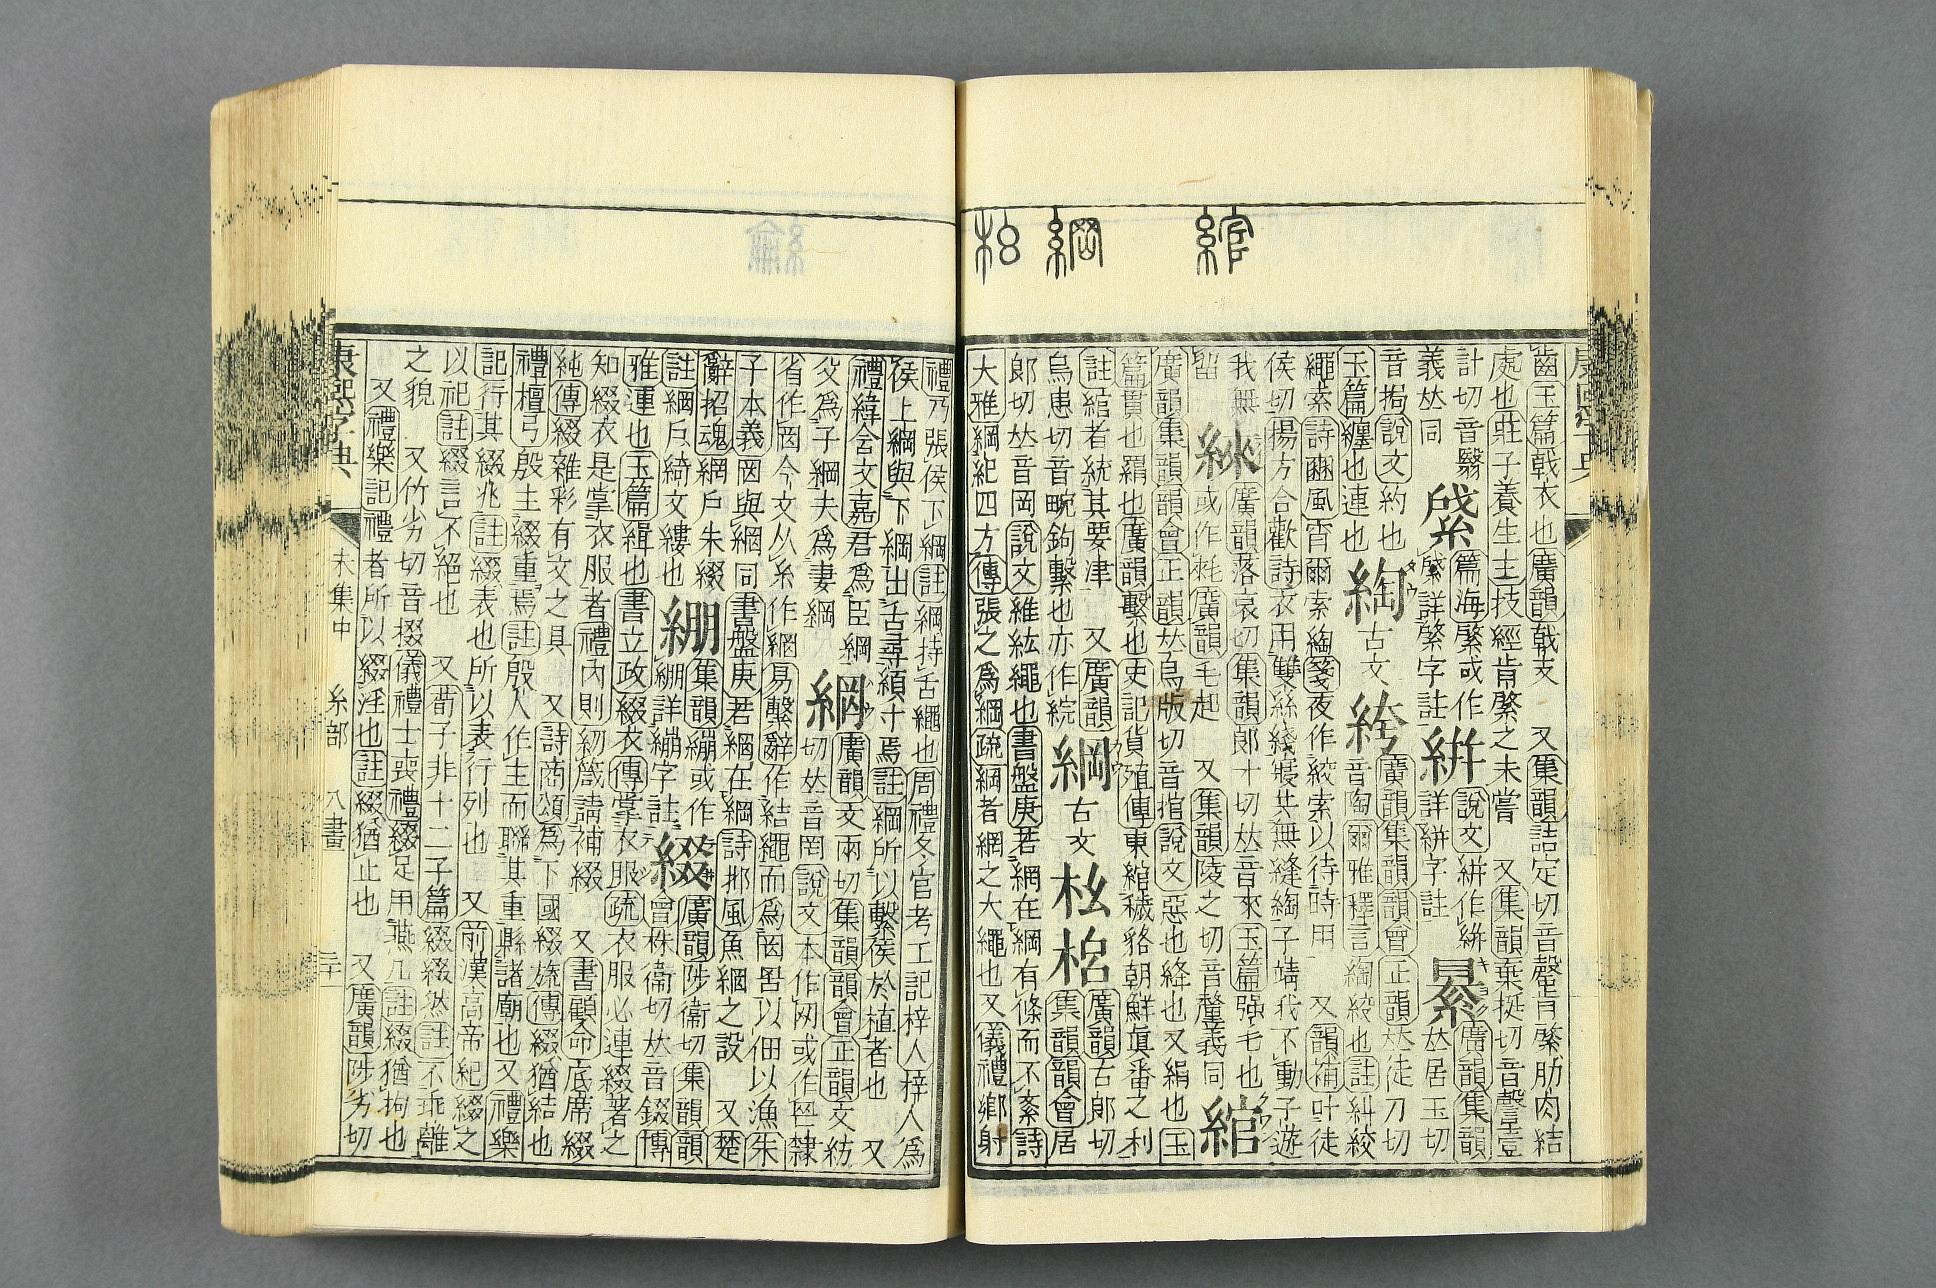 綰 綱 㭃
齒玉篇戟衣也廣韻戟支 又集韻詰定切音罄肯綮肋肉結
處也莊子養生主技經肯綮之未嘗 又集韻棄挺切音謦壹
計切音翳 綮 篇海綮或作
義𠀤同 綮詳綮字註 絣 說文絣作絣 㬎 廣韻集韻
詳絣字註 𠀤居玉切
音挶說文約也 綯 古文 絝 廣韻集韻韻會正韻𠀤徒刀切
玉篇纏也連也 音陶爾雅釋言綯絞也註糾絞
繩索詩豳風宵爾索綯箋夜作絞索以待時用 又韻補叶徒
侯切揚方合歡詩衣用雙絲綫寢共無縫綯子靖我不動子遊
我無 廣韻落哀切集韻郎才切𠀤音來玉篇强毛也
留 或作氂廣韻毛起 又集韻陵之切音釐義同 綰
廣韻集韻韻會正韻𠀤烏版切音捾說文惡也絳也又絹也玉
篇貫也羂也廣韻繫也史記貨殖傳東綰穢貉朝鮮眞番之利
註綰者統其要津 又廣韻
烏患切音畹鉤繫也亦作綄 綱 古文 㭃 𣐂 廣韻古郎切
集韻韻會居
郞切𠀤音岡說文維紘繩也書盤庚若網在綱有條而不紊詩
大雅綱紀四方傳張之爲綱疏綱者網之大繩也又儀禮鄉射
綸
禮乃張侯下綱註綱持舌繩也周禮冬官考工記梓人梓人爲
侯上綱與下綱出舌尋縜寸焉註綱所以繫侯於植者也 又
禮緯含文嘉君爲臣綱
父爲子綱夫爲妻綱 網 廣韻文兩切集韻韻會正韻文紡
切𠀤音罔說文本作网或作𦉰隸
省作罔今文从糸作網易繫辭作結繩而爲罔罟以佃以漁朱
子本義罔與網同書盤庚若網在綱詩邶風魚網之設 又楚
辭招魂網戶朱綴
註綱戶綺文縷也 綳 集韻繃或作
綳詳繃字註 綴 廣韻陟衞切集韻韻
會株衞切𠀤音錣傳
雅連也玉篇緝也書立政綴衣傳掌衣服疏衣服必連綴著之
知綴衣是掌衣服者禮內則紉箴請補綴 又書顧命底席綴
純傳綴雜彩有文之具 又詩商頌爲下國綴旒傳綴猶結也
禮檀弓殷主綴重焉註殷人作主而聯其重縣諸廟也又禮樂
記行其綴兆註綴表也所以表行列也 又前漢高帝紀綴之
以祀註綴言不絕也 又荀子非十二子篇綴綴然註不乖離
之貌 又竹劣切音掇儀禮士喪禮綴足用燕几註綴猶拘也
又禮樂記禮者所以綴淫也註綴猶止也 又廣韻陟劣切
康熙字典 未集中 糸部 八畫 三十